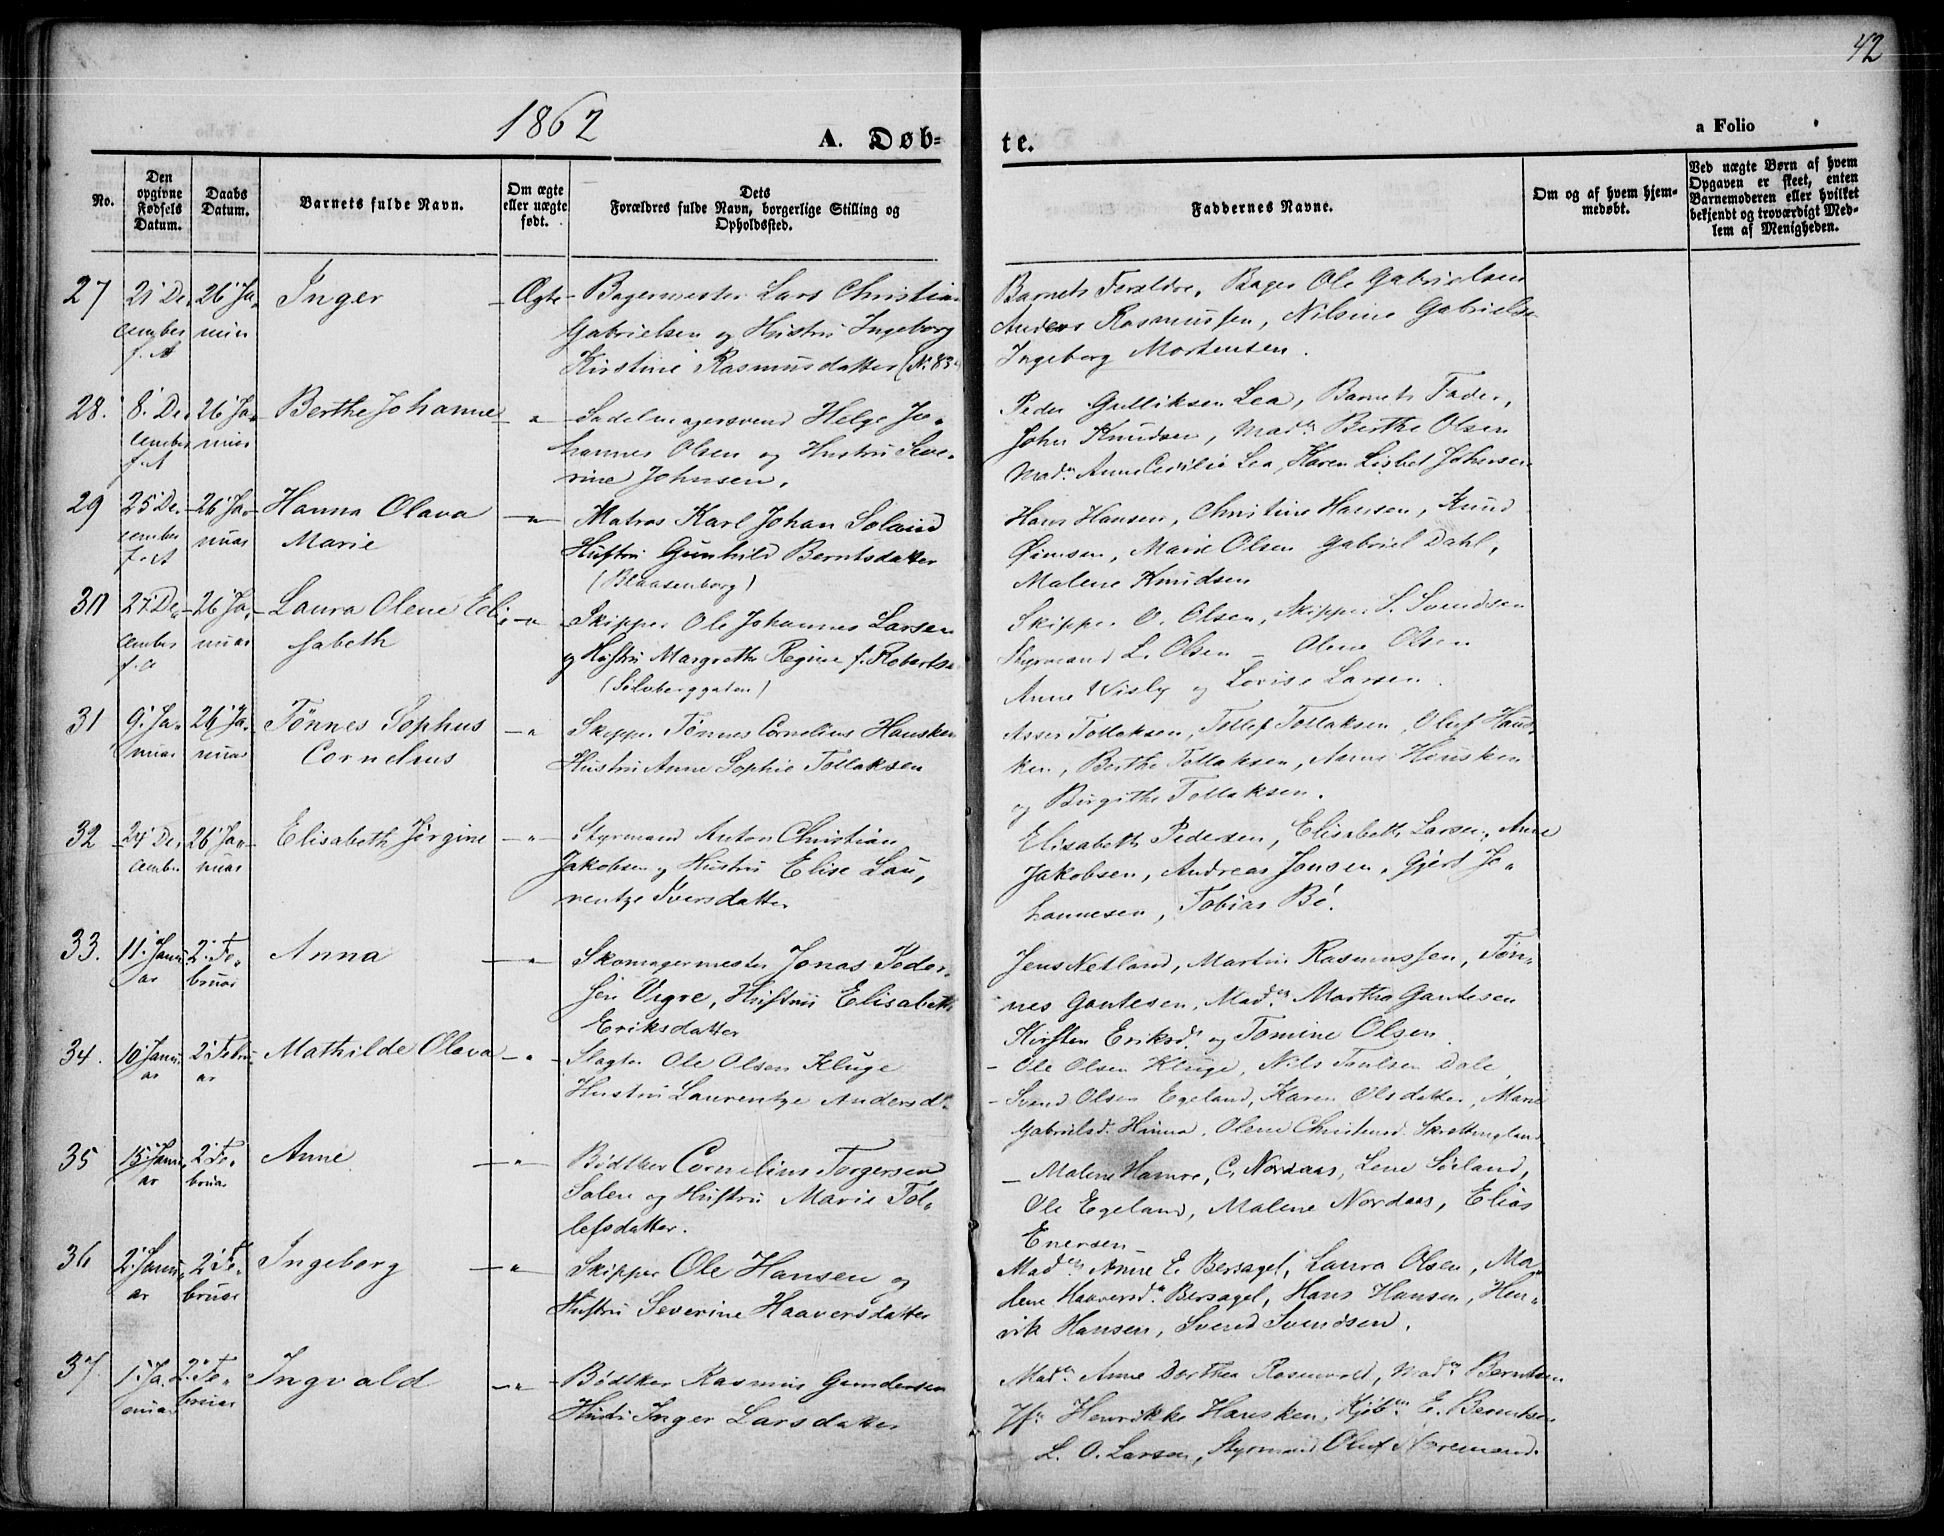 42
1862
A. Døb-
te.
a Folio
No.
Den
opgivne
Fødsels
Datum.
Daabs
Datum.
Barnets fulde Navn.
Om ægte
eller uægte
født.
Dets
Forældres fulde Navn, borgerlige Stilling og
Opholdssted.
Faddernes Navne.
Om og af hvem hjem-
medøbt.
Ved uægte Børn af hvem
Opgaven er skeet, enten
Barnemoderen eller hvilket
bekjendt og troværdigt Med-
lem af Menigheden.
27 21 De- 26 Ja- Inger - Ægte - Bagermester Lars Christian
cember nuar Gabrielsen og Hustru Ingeborg
f. A Kirstine Rasmusdatter
Barnets Forældre, Bager Ole Gabrielsen
Anders Rasmussen, Nilsine Gabrielse
Ingeborg Mortensen.
28. 8. De- 26 Ja- Berthe Johanne - " - Sadelmagersvend Helge Jo-
cember nuar hannes Olsen og Hustru Seve-
f. A rine Johnsen.
Peder Gulliksen Lea, Barnets Fader,
John Knudsen, Mad. Berthe Olsen
Mad. Anne Cecilie Lea, Karen Lisbet Johnsen
29 25 De- 26 Ja- Hanna Olava - " - Matros Karl Johan
cember nuar Marie Hustru Gunhild Berntsdatter
f. A (Blaasenborg)
Hans Hansen, Christine Hansen, Knud
Marie Olsen Gabriel Dahl,
Malene Knudsen
30 27 De- 26 Ja- Laura Olene Eli- - " - Skipper Ole Johannes Larsen
cember nuar sabeth og Hustru Margrethe Regine f. Roberts
f. A (Sølvberggaten)
Skipper O. Olsen, Skipper S. Svendsen
Styrmand L. Olsen - Olene Olsen
Anne Visly og Lovise Larsen.
31 9. Ja- 26 Ja- Tønnes Sophus - " - Skipper Tønnes Cornelius Hausken
nuar nuar Cornelius Hustru Anne Sophie Tollaksen
Asser Tollaksen, Tollef Tollaksen, Oluf Haus-
ken, Berthe Tollaksen, Anne Hausken
og Birgithe Tollaksen.
32 24 De- 26 Ja- Elisabeth Jørgine - " - Styrmand Anton Christian
cember nuar Jakobsen og Hustru Elise Lau-
rentze Iversdatter
Elisabeth Pedersen, Elisabeth Larsen, Anne
Jakobsen, Andreas Jensen, Gjert Jo-
hannesen, Tobias Bø.
33. 11. Janu- 2. Fe- Anna - " - Skomagermester Jonas Peder-
ar bruar sen Vigre, Hustru Elisabeth
Eriksdatter
Jens Netland, Martin Rasmussen, Tøn-
nes Gautesen, Mad. Martha Gautesen
Kirsten Eriksd. og Tomine Olsen.
34. 10 Janu- 2 Febru- Mathilde Olava - " - Slagter Ole Olsen Kluge
ar ar Hustru Laurentze Andersd.
- Ole Olsen Kluge, Nils Paulsen Dale,
- Svend Olsen Egeland, Karen Olsdatter, Marie
Gabrielsd. Hinna, Olene Christensd. Skrettingland
35 15. Janu- 2 Fe- Anne - " - Bødtker Cornelius Torgersen
ar bruar Salen og Hustru Marie Tol-
lefsdatter.
- Malene Hamre, C. Nordaas, Lene Sørland,
Ole Egeland, Malene Nordaas, Elias
Enersen -
36 2. Janu- 2 Fe- Ingeborg - " - Skipper Ole Hansen og
ar bruar Hustru Severine Haaversdatter
Mad. Anne E. Bersagel, Laura Olsen, Ma-
lene Haaversd. Bersagel, Hans Hansen, Hen-
rik Hansen, Svend Svendsen.
37. 1. Ja- 2. Fe- Ingvald - " - Bødtker Rasmus Gundersen
nuar bruar Hustru Inger Larsdatter
Mad. Anne Dorthea Rosenvold, Mad. Berntsen
Jfr Henrikke Hausken, Kjøbm. E. Berntsen
L. O. Larsen, Styrmand Oluf